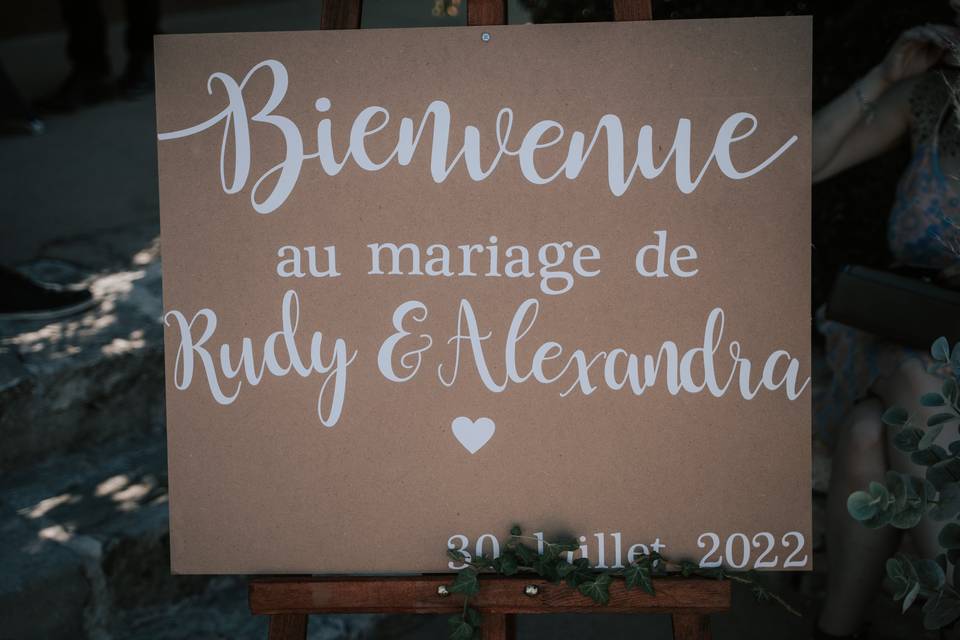 Bienvenue
au mariage de
Rudy & Alexandra
30 Juillet 2022